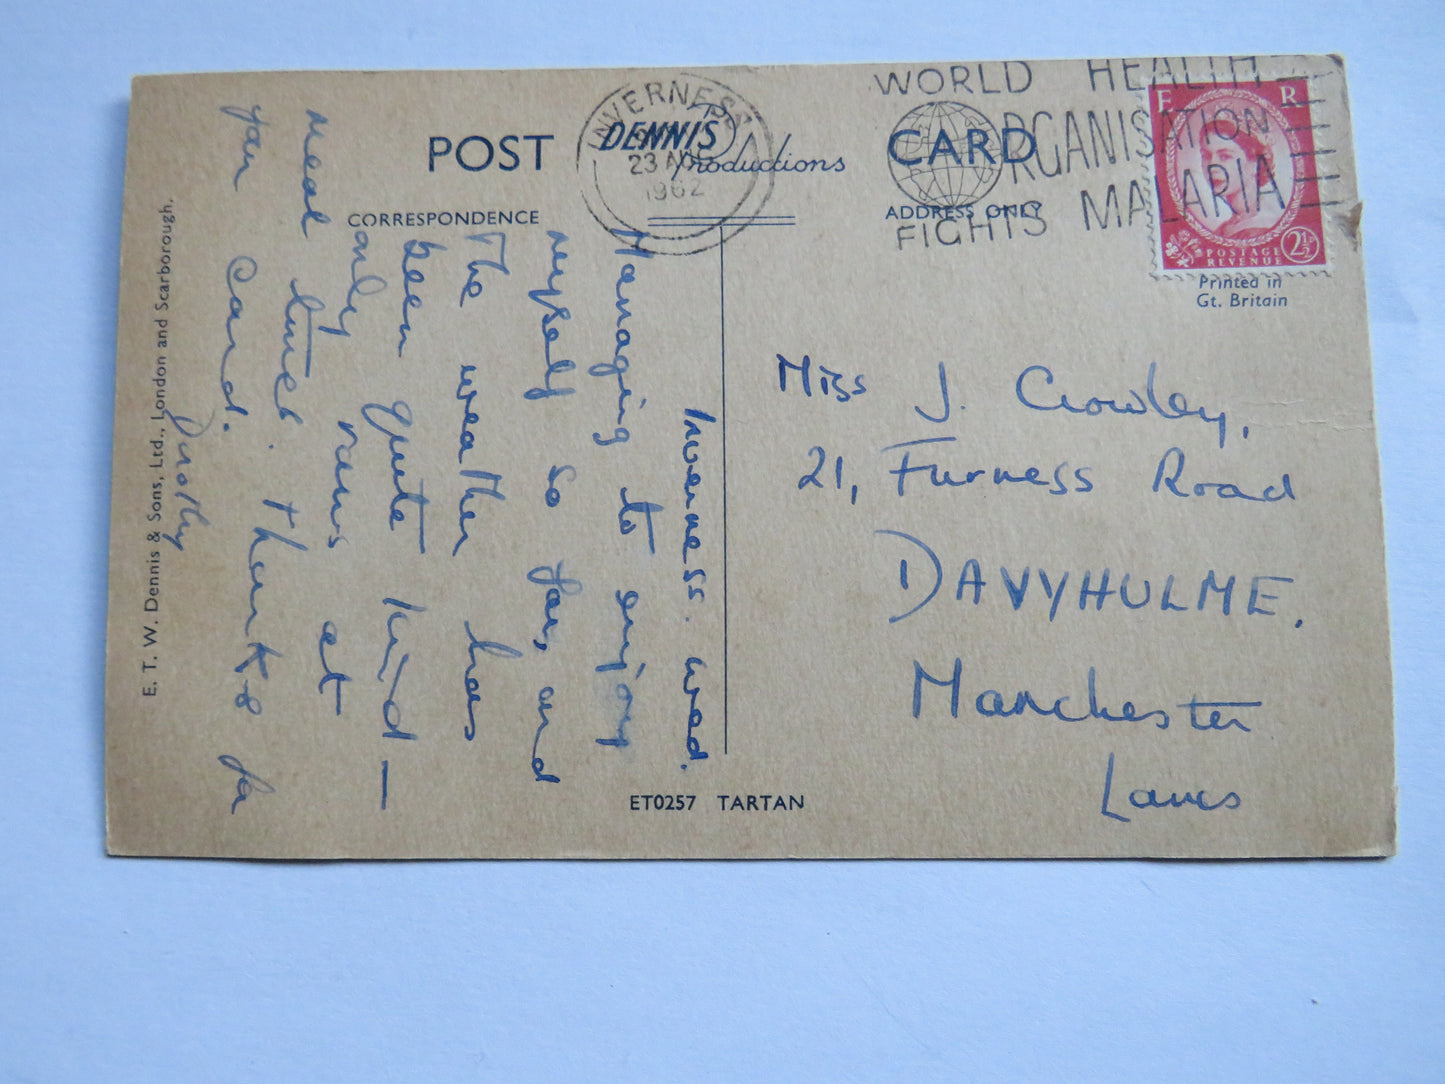 POST CARD
DENNIS
Productions
CORRESPONDENCE
ADDRESS ONLY
INVERNESS
23
1962
WORLD HEALTH
ORGANISATION
FIGHTS MALARIA
E R
POSTAGE
REVENUE
2½D
Printed in
Gt. Britain
Inverness. Wed.
Managing to enjoy
myself so far, and
The weather has
been quite kind –
only rains at
meal times. Thanks for
your card.
Dorothy
Miss J. Crowley,
21, Furness Road
DAVYHULME.
Manchester
Lancs
ET0257 TARTAN
E. T. W. Dennis & Sons, Ltd., London and Scarborough.